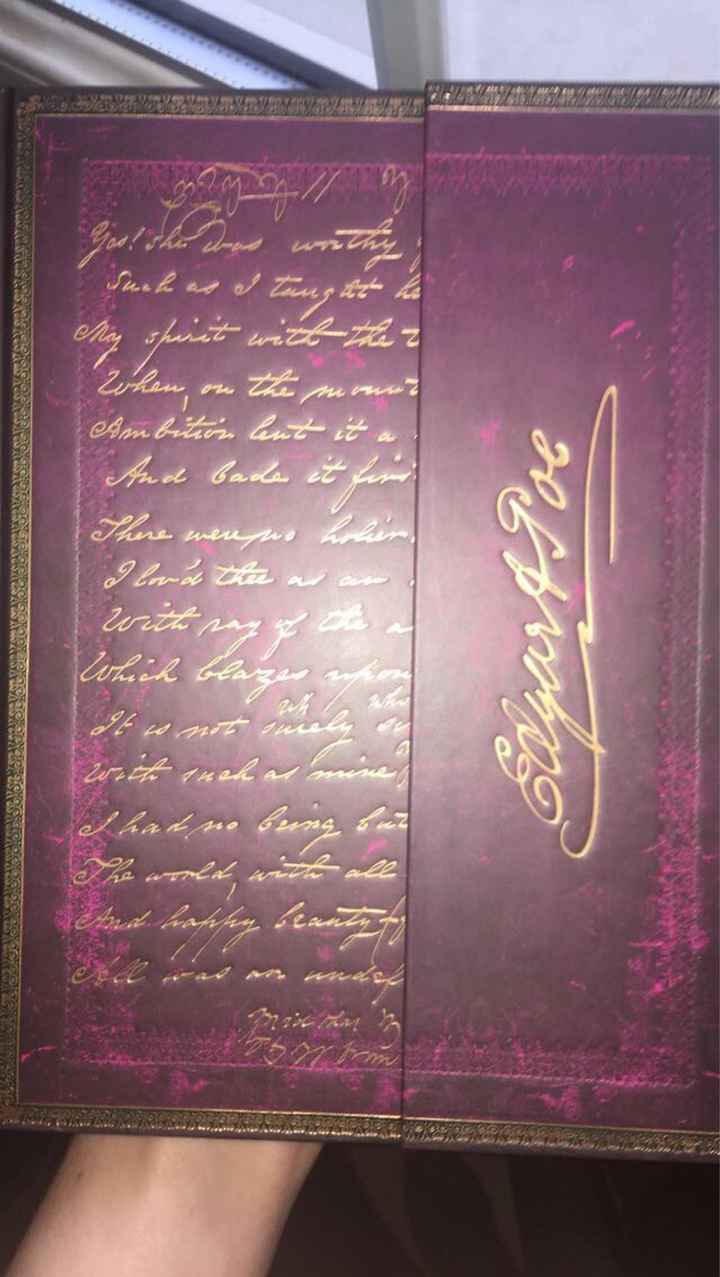 Yes! she was worthy
Such as I taught he
My spirit with the t
When, on the mount
Ambition lent it a
And bade it firs
There were no holier
I lov'd thee as an
With ray of the a
Which blazes upon
It is not surely si
With such as mine
I had no being but
The world, with all
And happy beauty (f
All was an undef
Edgar A Poe